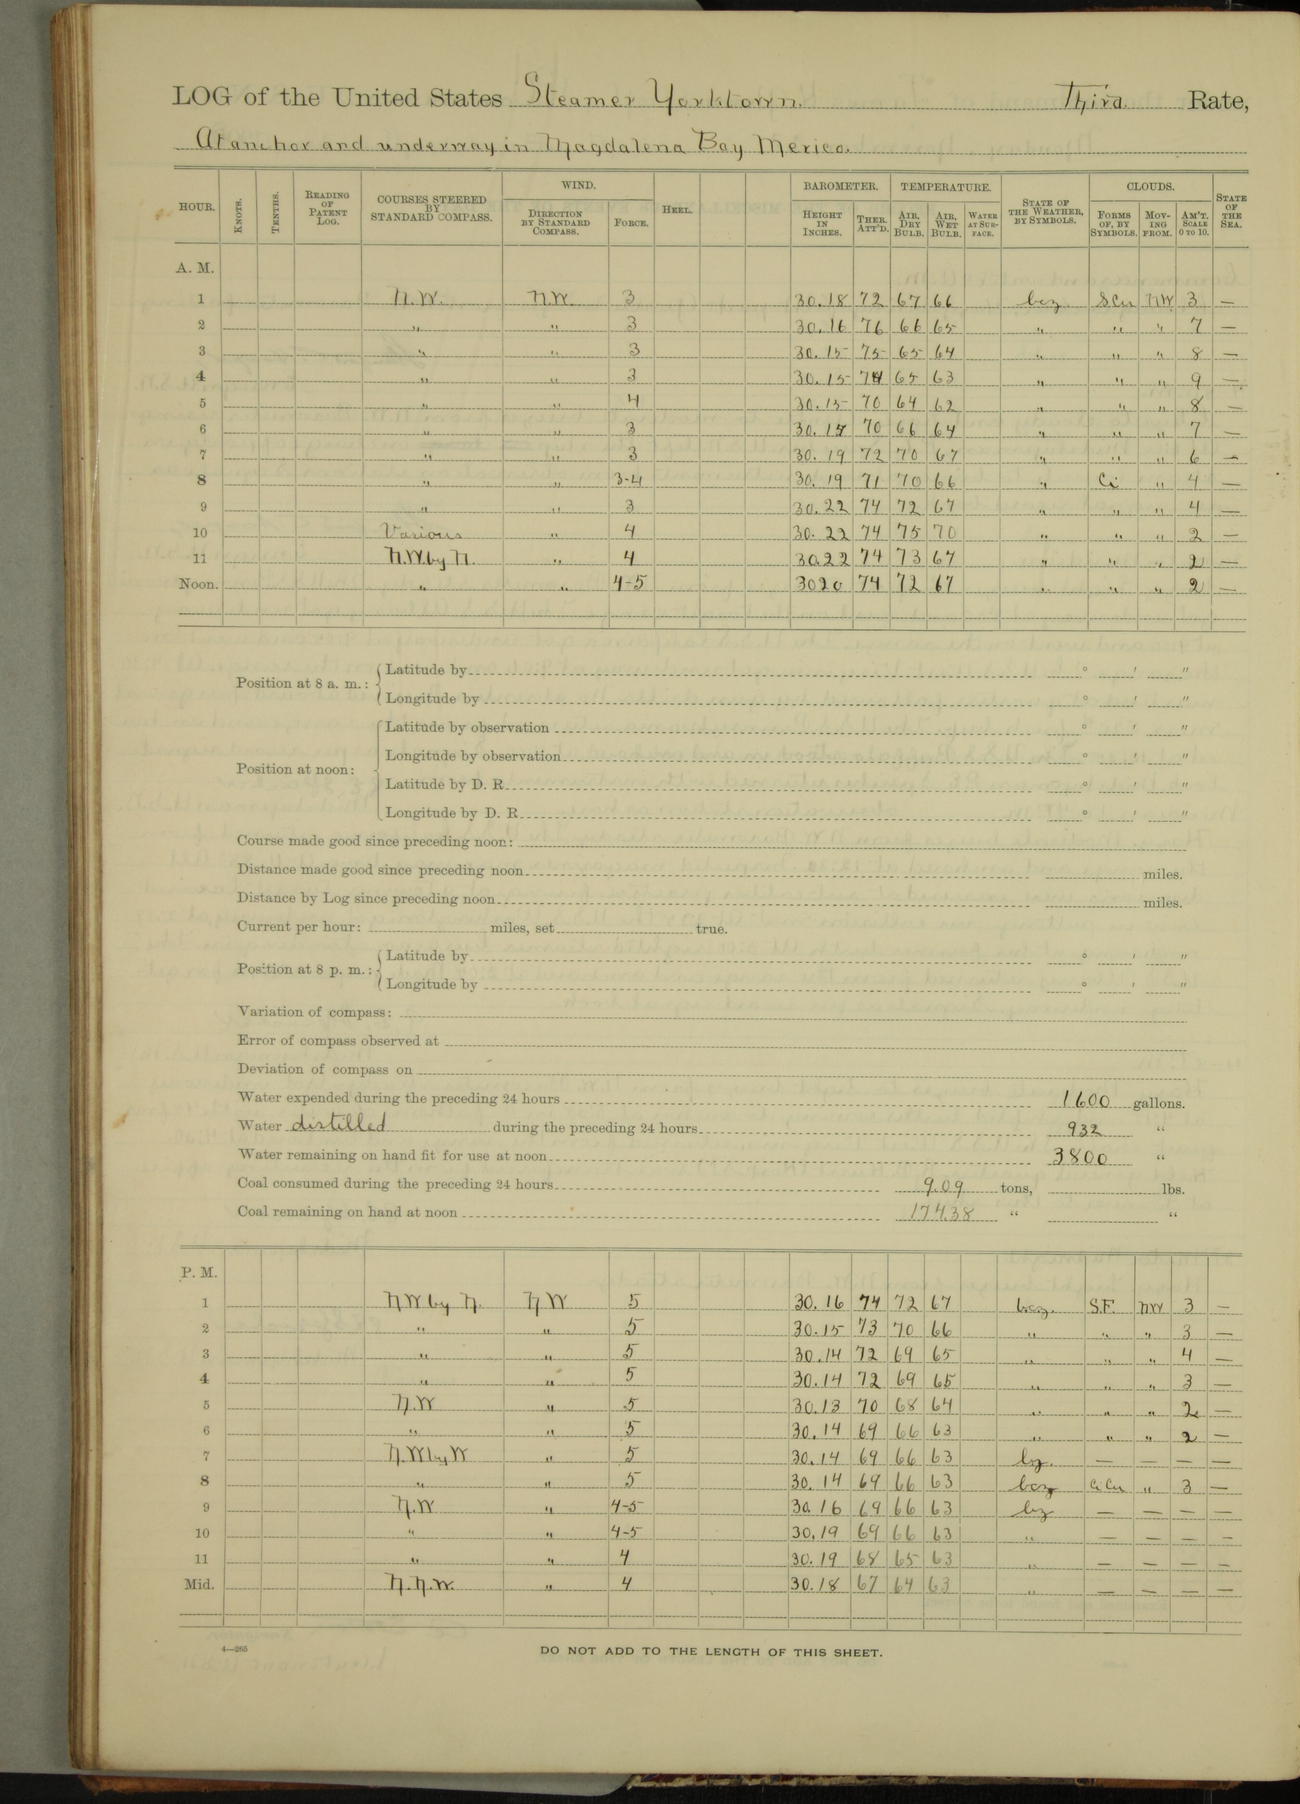 LOG of the United States Steamer Yorktown. Third Rate,
At anchor and underway in Magdalena Bay Mexico.
HOUR. KNOTS. TENTHS. READING OF PATENT LOG. COURSES STEERED BY STANDARD COMPASS. WIND. DIRECTION BY STANDARD COMPASS. FORCE. HEEL. BAROMETER. HEIGHT IN INCHES. THER. ATT'D. TEMPERATURE. AIR, DRY BULB. AIR, WET BULB. WATER AT SURFACE. STATE OF THE WEATHER, BY SYMBOLS. CLOUDS. FORMS OF, BY SYMBOLS. MOVING FROM. AM'T. SCALE 0 TO 10. STATE OF THE SEA.
A. M.
1 N.W. NW. 3 30.18 72 67 66 bcz S Cu NW 3 —
2 " " 3 30.16 76 66 65 " " " 7 —
3 " " 3 30.15 75 65 64 " " " 8 —
4 " " 3 30.15 74 65 63 " " " 9 —
5 " " 4 30.15 70 64 62 " " " 8 —
6 " " 3 30.15 70 66 64 " " " 7 —
7 " " 3 30.19 72 70 67 " " " 6 —
8 " " 3-4 30.19 71 70 66 " Ci " 4 —
9 " " 3 30.22 74 72 67 " " " 4 —
10 Various " 4 30.22 74 75 70 " " " 2 —
11 N.W. by N. " 4 30.22 74 73 67 " " " 2 —
Noon. " " 4-5 3020 74 72 67 " " " 2 —
Position at 8 a. m.: Latitude by ° ' "
Longitude by ° ' "
Position at noon: Latitude by observation ° ' "
Longitude by observation ° ' "
Latitude by D. R. ° ' "
Longitude by D. R. ° ' "
Course made good since preceding noon:
Distance made good since preceding noon miles.
Distance by Log since preceding noon miles.
Current per hour: miles, set true.
Position at 8 p. m.: Latitude by ° ' "
Longitude by ° ' "
Variation of compass:
Error of compass observed at
Deviation of compass on
Water expended during the preceding 24 hours 1600 gallons.
Water distilled during the preceding 24 hours 932 "
Water remaining on hand fit for use at noon 3800 "
Coal consumed during the preceding 24 hours 9.09 tons, lbs.
Coal remaining on hand at noon 174.38 " "
P. M.
1 N W by N. N W 5 30.16 74 72 67 bcz. S.F. NW 3 —
2 " " 5 30.15 73 70 66 " " " 3 —
3 " " 5 30.14 72 69 65 " " " 4 —
4 " " 5 30.14 72 69 65 " " " 3 —
5 N.W " 5 30.13 70 68 64 " " " 2 —
6 " " 5 30.14 69 66 63 " " " 2 —
7 N.W by W " 5 30.14 69 66 63 bz. — — — —
8 " " 5 30.14 69 66 63 bcz Ci Cu " 3 —
9 N.W " 4-5 30.16 69 66 63 bz — — — —
10 " " 4-5 30.19 69 66 63 " — — — —
11 " " 4 30.19 68 65 63 " — — — —
Mid. N.N.W. " 4 30.18 67 64 63 " — — — —
4—265
DO NOT ADD TO THE LENGTH OF THIS SHEET.